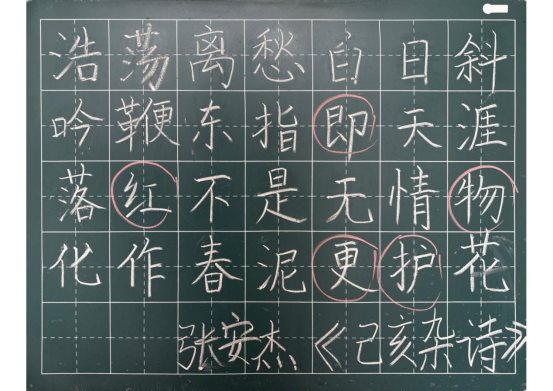 浩荡离愁白日斜
吟鞭东指即天涯
落红不是无情物
化作春泥更护花
张安杰《己亥杂诗》